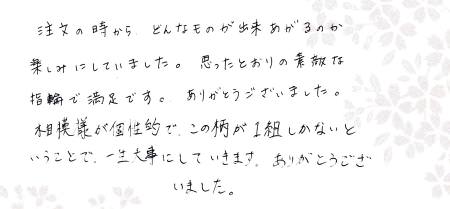 注文の時から、どんなものが出来あがるのか
楽しみにしていました。思ったとおりの素敵な
指輪で満足です。ありがとうございました。
木目模様が個性的で、この柄が1組しかないと
いうことで、一生大事にしていきます。ありがとうござ
いました。